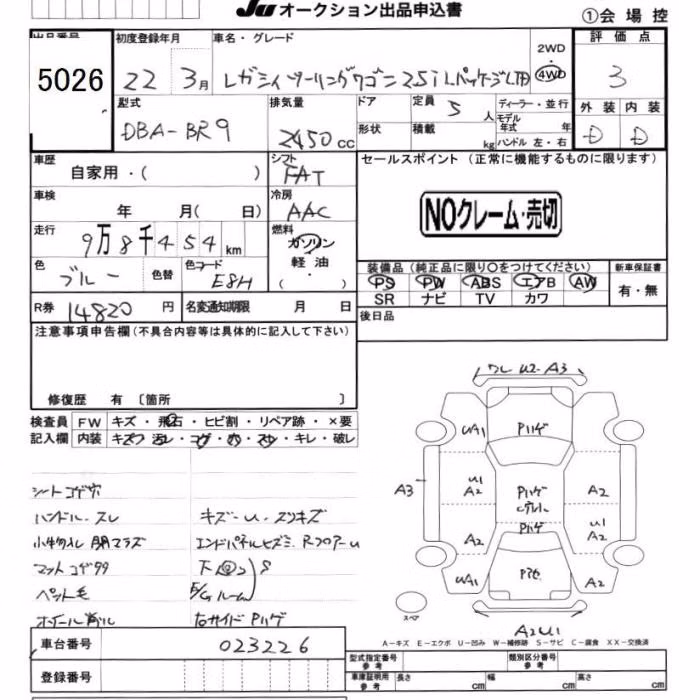 JU オークション出品申込書
①会場控
出品番号 5026
初度登録年月 22 3月
車名・グレード レガシィツーリングワゴン 2.5i Lパッケージ LTD
2WD・4WD
評価点 3
型式 DBA-BR9
排気量 2450 cc
ドア
定員 5人
ディーラー・並行
形状
積載 kg
モデル年式 年
ハンドル 左・右
外装 D
内装 D
車歴 自家用・( )
シフト FAT
セールスポイント (正常に機能するものに限ります)
車検 年 月( 日)
冷房 AAC
NOクレーム・売切
走行 9万8千454km
燃料 ガソリン 軽油
色 ブルー 色替
色コード E8H
装備品(純正品に限り○をつけてください)
PS PW ABS エアB AW
SR ナビ TV カワ
新車保証書 有・無
R券 14820円
名変通知期限 月 日
後日品
注意事項申告欄(不具合内容等は具体的に記入して下さい)
修復歴 有 〔箇所 〕
検査員記入欄
FW キズ・飛石・ヒビ割・リペア跡・×要
内装 キズ・汚レ・コゲ・穴・スレ・キレ・破レ
シートコゲ穴
ハンドル・スレ
キズ-U・スリキズ
ペット毛
右サイドPハゲ
ワレ U2-A3
UA1 Pハゲ
A3 U1 A2 Pハゲ A2
Pハゲ
A2 U1 A2
UA1 A2
スペア
A2U1
A-キズ E-エクボ U-凹み W-補修跡 S-サビ C-腐食 XX-交換済
車台番号 023226
登録番号
型式指定番号 参考
類別区分番号 参考
車庫証明用 参考 長さ cm 幅 cm 高さ cm